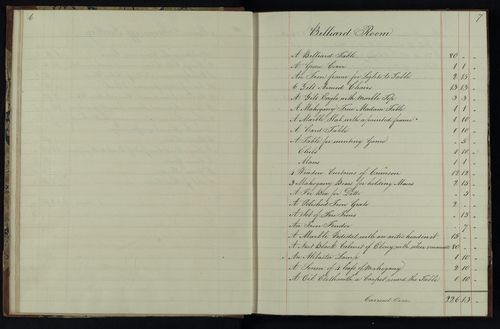 6
7
Billiard Room
A Billiard Table 80 " "
A Green Cover 1 1 "
An Iron frame for Lights to Table 2 15 "
6 Gilt Armed Chairs 13 13 "
A Gilt Eagle with Marble Top 3 3 "
A Mahogany Table 1 1 "
A Marble Slab with a painted frame 1 10 "
A Card Table 1 10 "
A Table for 5 "
Clubs 1 10 "
Maces 1 1 "
Window Curtains of Crimson 12 12 "
3 Mahogany Boxes for holding Maces 2 15 "
A Box for Ditto 5 "
A Polished Iron Grate 2 "
A Set of Fire Irons 15 "
An Iron Fender 7 "
A Marble Pedestal with an antic head on it 15 "
A Black Cabinet of Ebony with silver 80 "
An Alabaster Lamp 1 10 "
A Screen of 4 leafs of Mahogany 2 10 "
A Oil Clothwith a Carpet round the Table 1 10 "
Carried Over 226 13 "